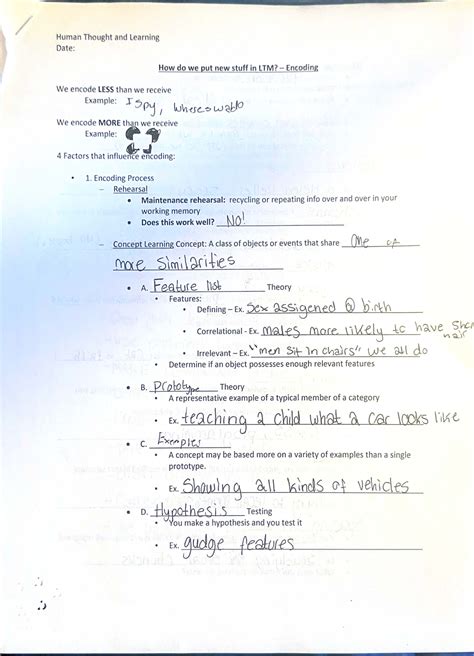 Human Thought and Learning
Date:
How do we put new stuff in LTM? – Encoding
We encode LESS than we receive
Example: I spy, Where's waldo
We encode MORE than we receive
Example:
4 Factors that influence encoding:
• 1. Encoding Process
– Rehearsal
• Maintenance rehearsal: recycling or repeating info over and over in your
working memory
• Does this work well? No!
– Concept Learning Concept: A class of objects or events that share One or
more Similarities
• A. Feature list Theory
• Features:
• Defining – Ex. Sex assigened @ birth
• Correlational - Ex. males more likely to have short
hair
• Irrelevant – Ex. "men sit in chairs" we all do
• Determine if an object possesses enough relevant features
• B. Prototype Theory
• A representative example of a typical member of a category
• Ex. teaching a child what a car looks like
• C. Examples
• A concept may be based more on a variety of examples than a single
prototype.
• Ex. Showing all kinds of vehicles
• D. Hypothesis Testing
• You make a hypothesis and you test it
• Ex. gudge features